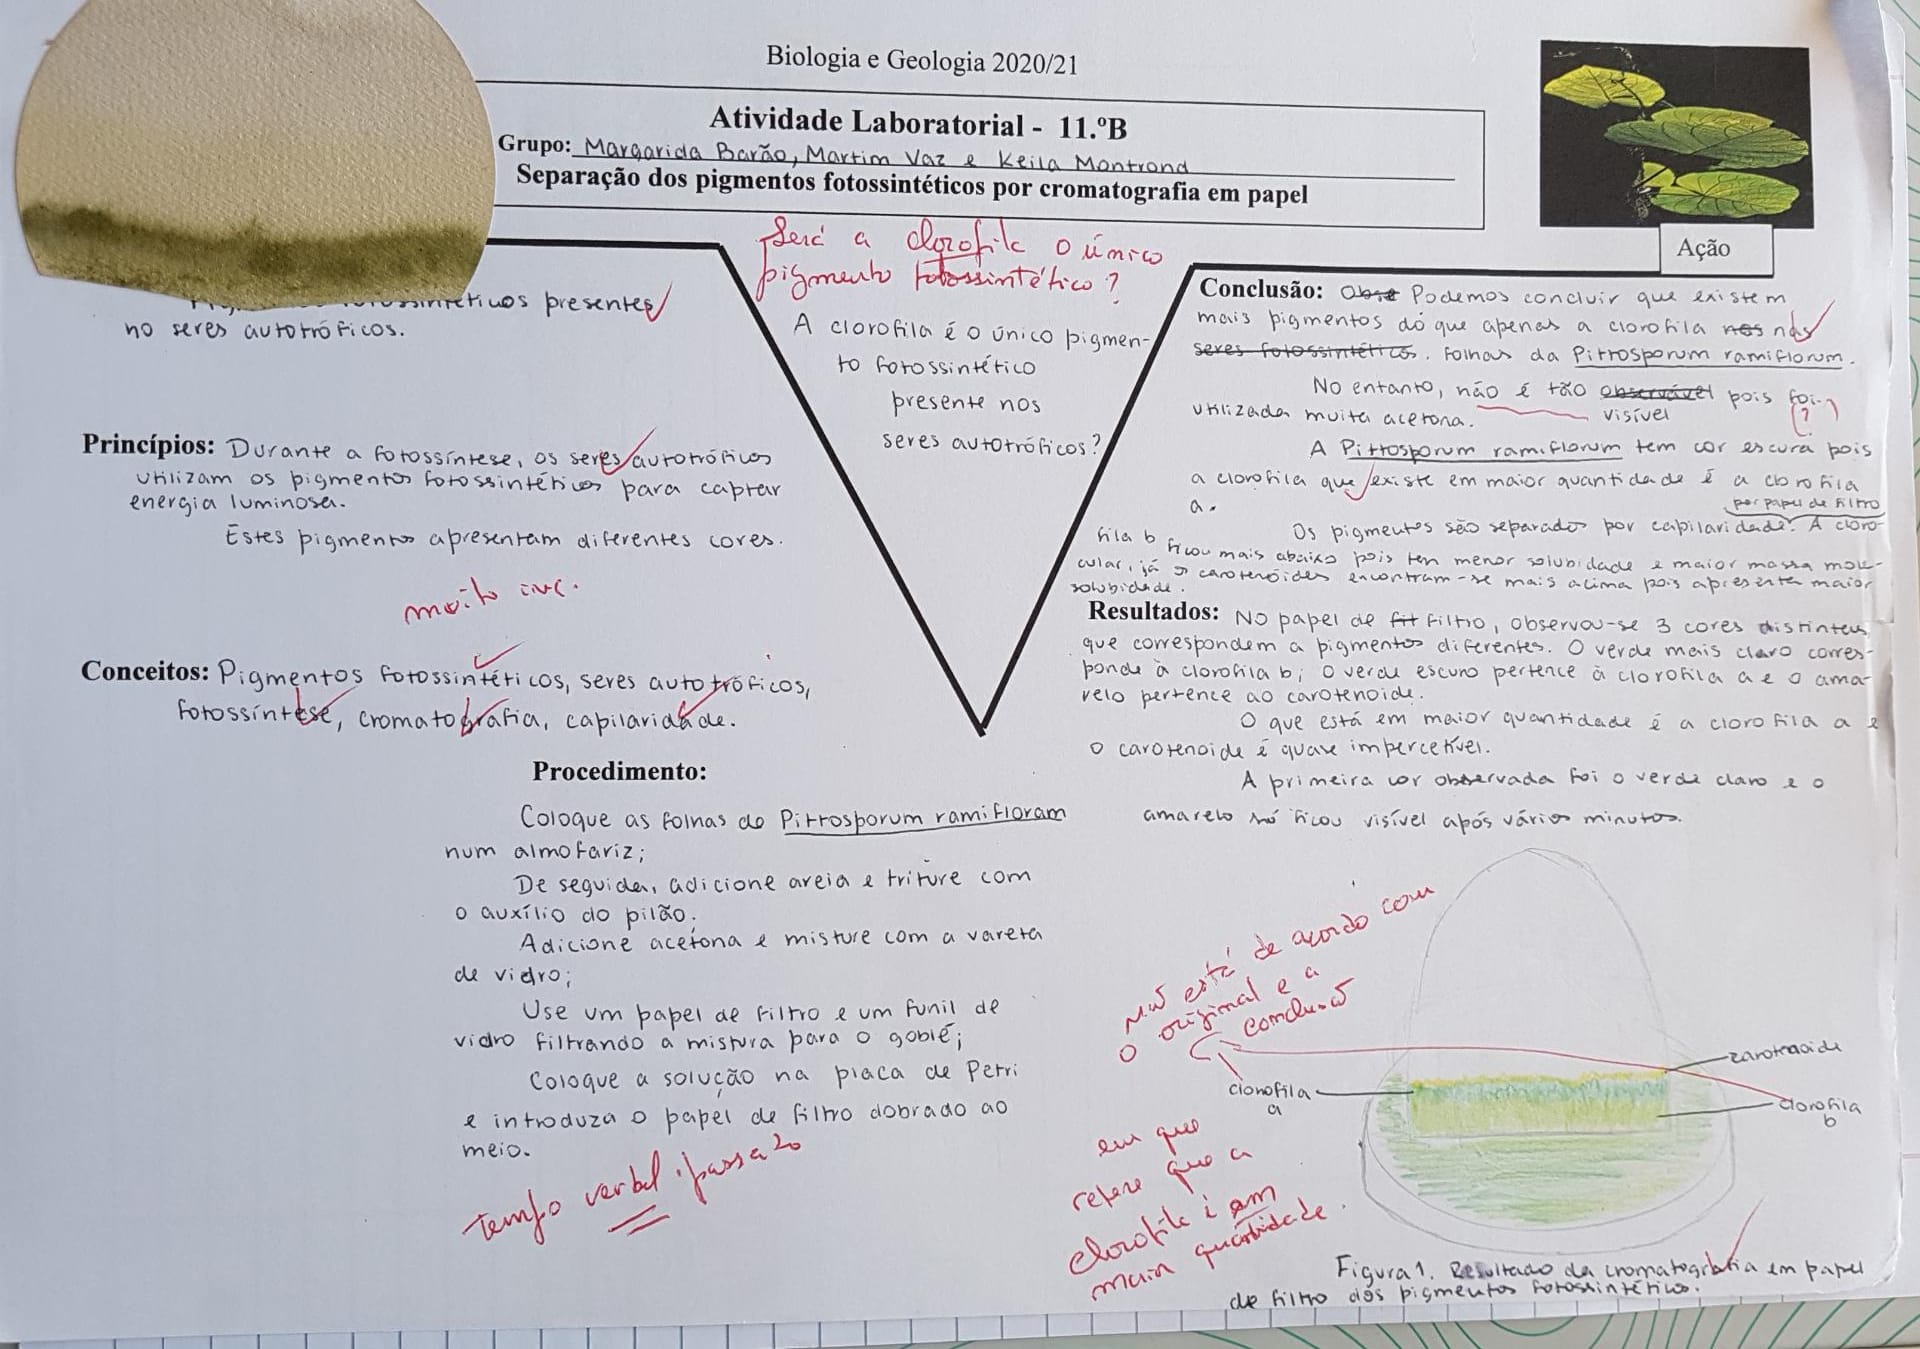 Biologia e Geologia 2020/21
Atividade Laboratorial - 11.ºB
Grupo: Margarida Barão, Martim Vaz e Keila Montrond
Separação dos pigmentos fotossintéticos por cromatografia em papel
Ação
fotossintéticos presentes
no seres autotróficos.
Princípios: Durante a fotossíntese, os seres autotróficos
utilizam os pigmentos fotossintéticos para captar
energia luminosa.
Estes pigmentos apresentam diferentes cores.
muito inc.
Conceitos: Pigmentos fotossintéticos, seres autotróficos,
fotossíntese, cromatografia, capilaridade.
Será a clorofila o único
pigmento fotossintético?
A clorofila é o único pigmen-
to fotossintético
presente nos
seres autotróficos?
Procedimento:
Coloque as folhas do Pittosporum ramifloram
num almofariz;
De seguida, adicione areia e triture com
o auxílio do pilão;
Adicione acetona e misture com a vareta
de vidro;
Use um papel de filtro e um funil de
vidro filtrando a mistura para o goblé;
Coloque a solução na placa de Petri
e introduza o papel de filtro dobrado ao
meio.
tempo verbal: passado
Conclusão: Obse Podemos concluir que existem
mais pigmentos do que apenas a clorofila nos nas
seres fotossintéticos. folhas da Pittosporum ramiflorum.
No entanto, não é tão observável pois foi
utilizada muita acetona. visível (?)
A Pittosporum ramiflorum tem cor escura pois
a clorofila que existe em maior quantidade é a clorofila
a.
por papel de filtro
Os pigmentos são separados por capilaridade. A cloro-
fila b ficou mais abaixo pois tem menor solubidade e maior massa mole-
cular, já os carotenóides encontram-se mais acima pois apresenta maior
solubidade.
Resultados: No papel de fit filtro, observou-se 3 cores distintas
que correspondem a pigmentos diferentes. O verde mais claro corres-
ponde à clorofila b; o verde escuro pertence à clorofila a e o ama-
relo pertence ao carotenoide.
O que está em maior quantidade é a clorofila a e
o carotenoide é quase impercetível.
A primeira cor observada foi o verde claro e o
amarelo só ficou visível após vários minutos.
Não está de acordo com
o original e a
conclusão
em que
refere que a
clorofila é em
maior quantidade.
carotenoide
clorofila
a
clorofila
b
Figura 1. Resultado da cromatografia em papel
de filtro dos pigmentos fotossintéticos.